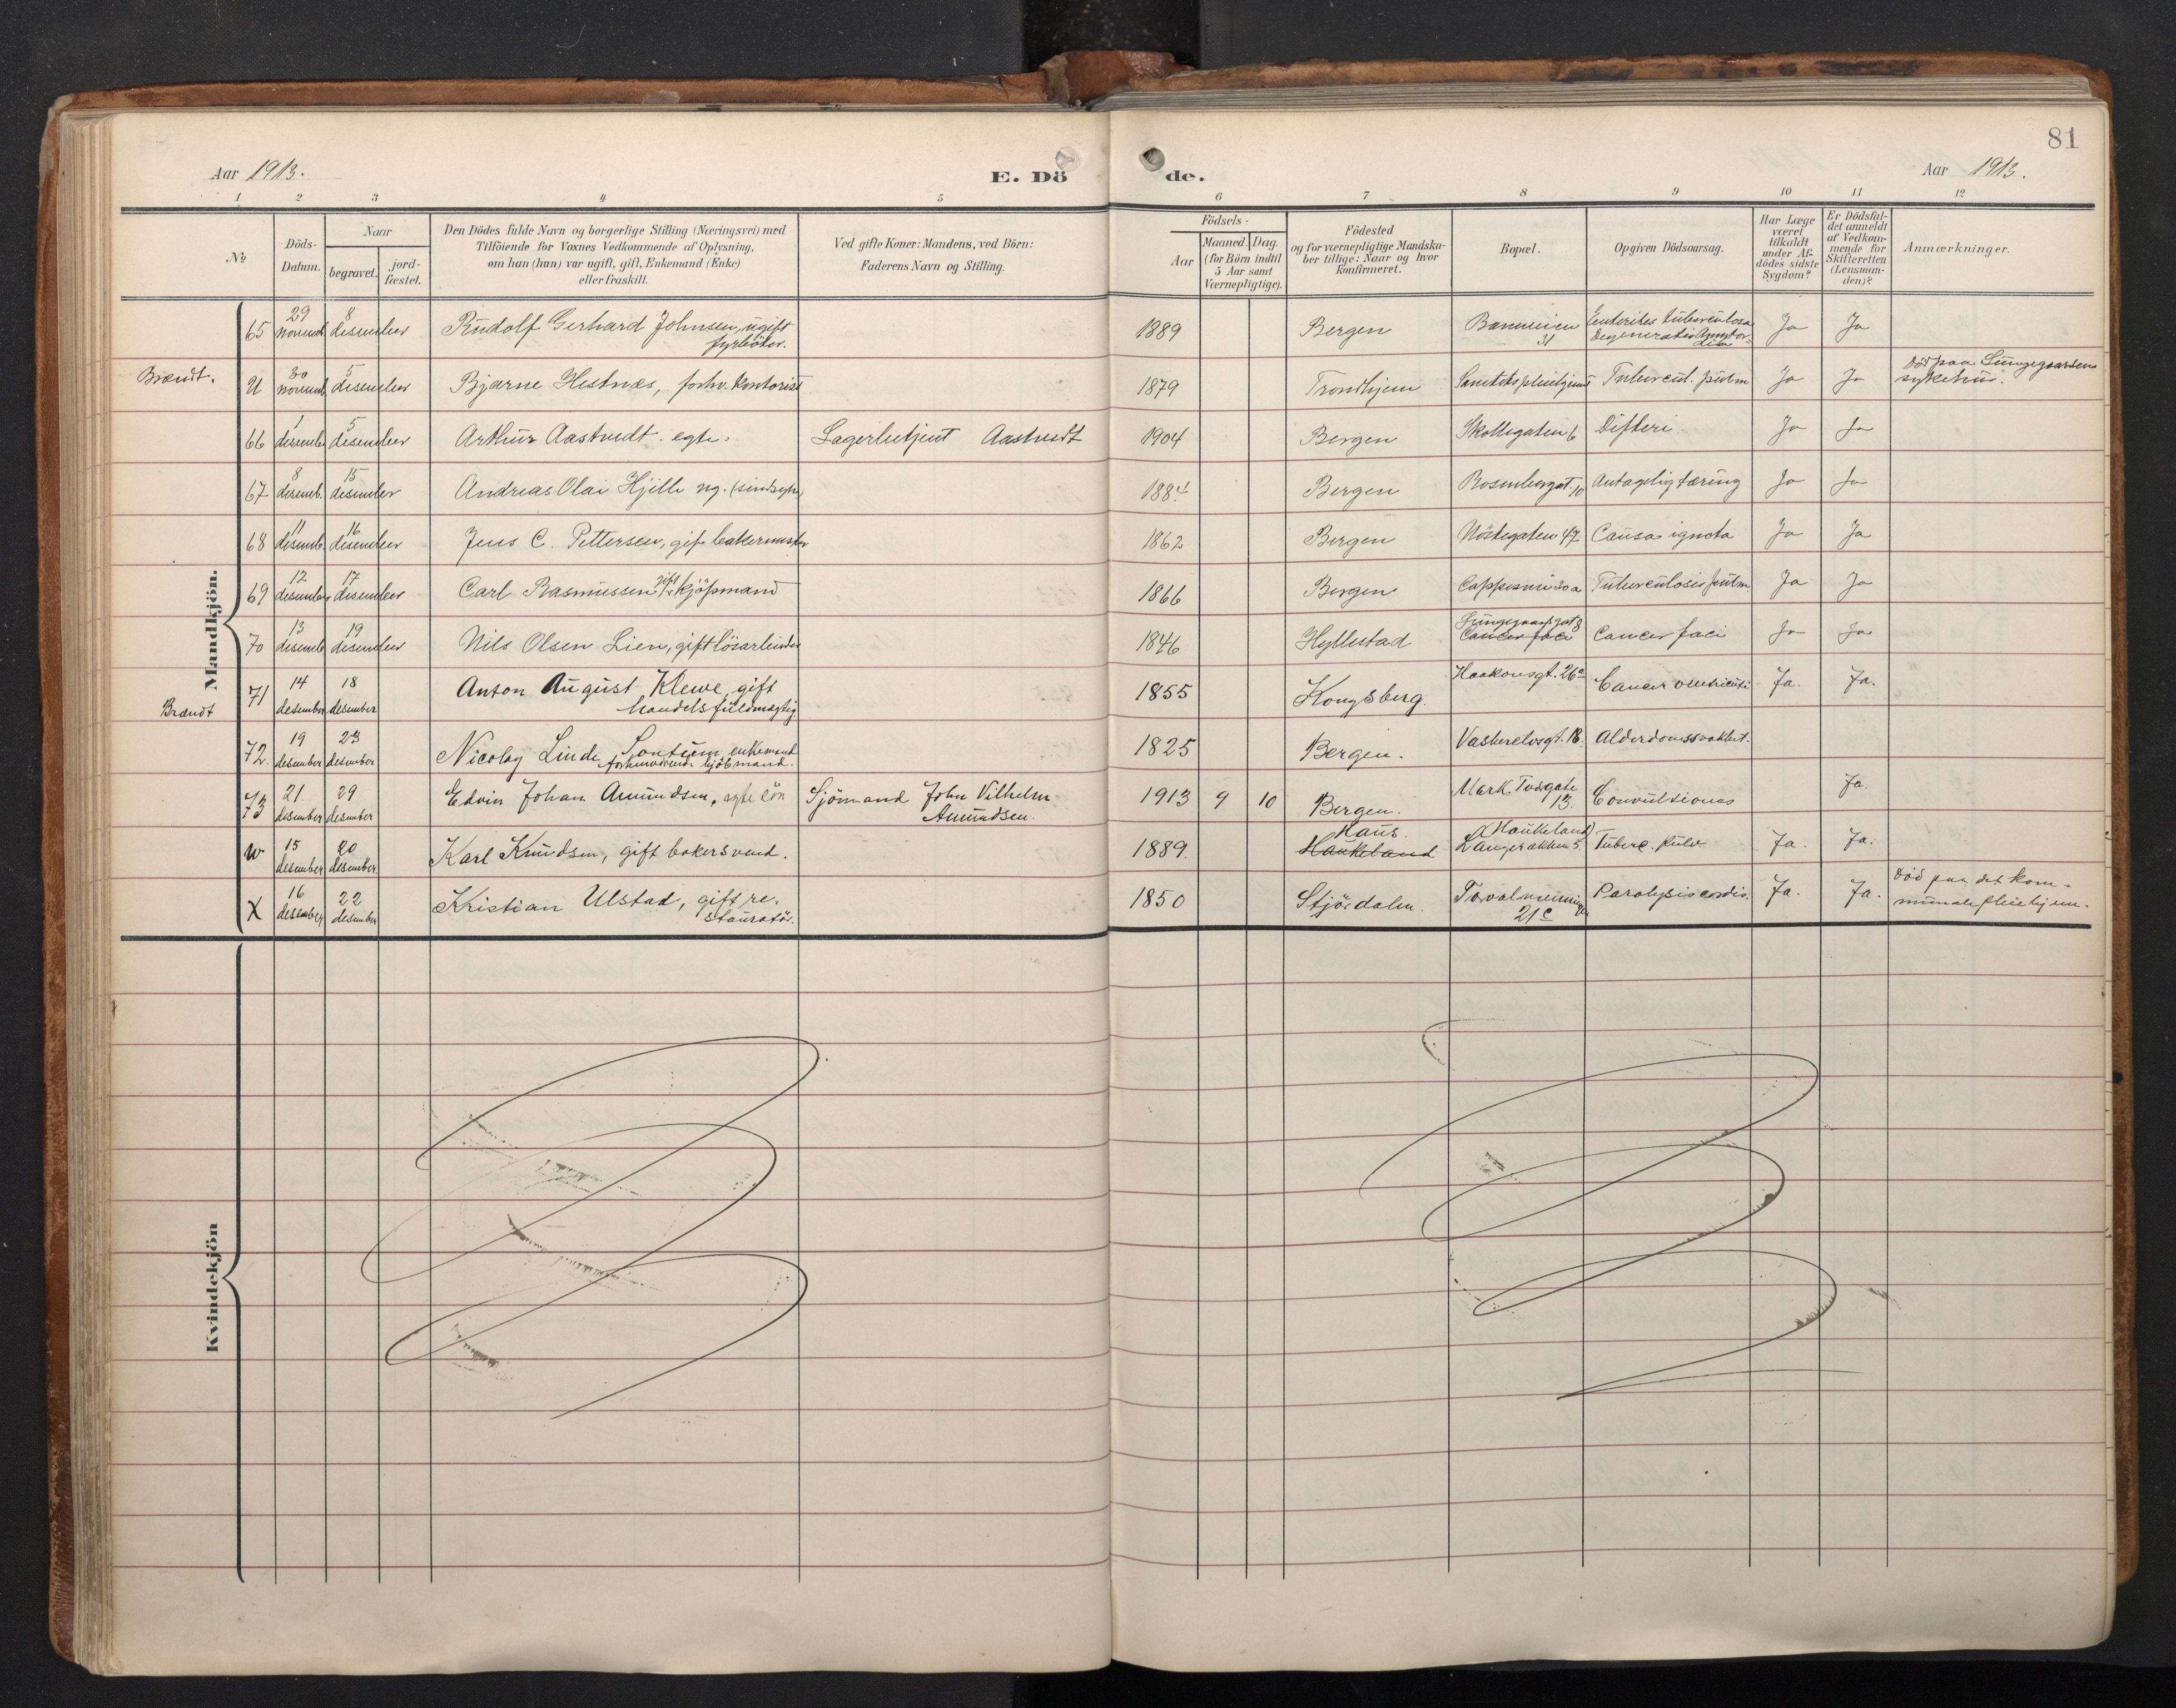 81
Aar 1913.
E. Dö
de.
Aar 1913.
1 2 3 4 5 6 7 8 9 10 11 12
№
Döds-
Datum.
Naar
begravet.
jord-
fæstet.
Den Dödes fulde Navn og borgerlige Stilling (Næringsvei) med
Tilföiende for Voxnes Vedkommende af Oplysning,
om han (hun) var ugift, gift, Enkemand (Enke)
eller fraskilt.
Ved gifte Koner: Mandens, ved Börn:
Faderens Navn og Stilling.
Födsels-
Aar
Maaned. Dag.
(for Börn indtil
5 Aar samt
Værnepligtige).
Födested
og for værnepligtige Mandska-
ber tillige: Naar og hvor
Konfirmeret.
Bopæl.
Opgiven Dödsaarsag.
Har Læge
været
tilkaldt
under Af-
dödes sidste
Sygdom?
Er Dödsfal-
det anmeldt
af Vedkom-
mende for
Skifteretten
(Lensman-
den)?
Anmærkninger.
Mandkjön.
65 29 novemb. 8 desember Rudolf Gerhard Johnsen, ugift
fyrböter. 1889 Bergen 31 Enterites tuberculosa Ja Ja
Brændt. U 30 novemb. 5 desember Bjarne Hestnæs, forhv. kontorist 1879 Trondhjem Tubercul. pulm Ja Ja Död paa Lungegaardens
sykehus.
66 1 desemb. 5 desember Arthur Aastvedt. egte. Lagerbetjent Aastvedt 1904 Bergen Skottegaten 6 Difteri. Ja Ja
67 8 desemb. 15 desember Andreas Olai Hjille ug. (sindsyk) 1884 Bergen Rosenbergat. 10 Antagelig tæring Ja Ja
68 11 desemb. 16 desember Jens C. Pettersen, gift bakermester 1862 Bergen Nöstegaten 47 Causa ignota Ja Ja
69 12 desember 17 desember Carl Rasmussen gift kjöpmand 1866 Bergen Tuberculosis pulm. Ja Ja
70 13 desemb. 19 desember Nils Olsen Lien, gift lösarbeider 1846 Hyllestad Lungegaardsgat 8
Cancer faci Cancer faci Ja Ja
Brændt 71 14 desember 18 desember Anton August Klewe, gift
handelsfuldmægtig 1855 Kongsberg. Haakonsgt. 26 Cancer ventriculi Ja. Ja.
72. 19 desember 23 desember Nicolay Linde Sontum, enkemand
forhenværende kjöbmand. 1825 Bergen. Vaskerelvsgt. 18. Alderdomssvakhet.
73 21 desember 29 desember Edvin Johan Amundsen, egte sön Sjömand John Vilhelm
Amundsen. 1913 9 10 Bergen. 13. Convultiones Ja.
W 15 desember 20 desember Karl Knudsen, gift bakersvend. 1889. Haus.
Haukeland (Haukeland)
5. Tuberc. Pulv. Ja. Ja.
X 16 desember 22 desember Kristian Ulstad, gift, re-
stauratör. 1850 Stjördalen. Torvalmenningen
21c Paralysis cordis. Ja. Ja. Död paa det kom-
munale pleiehjem.
Kvindekjön